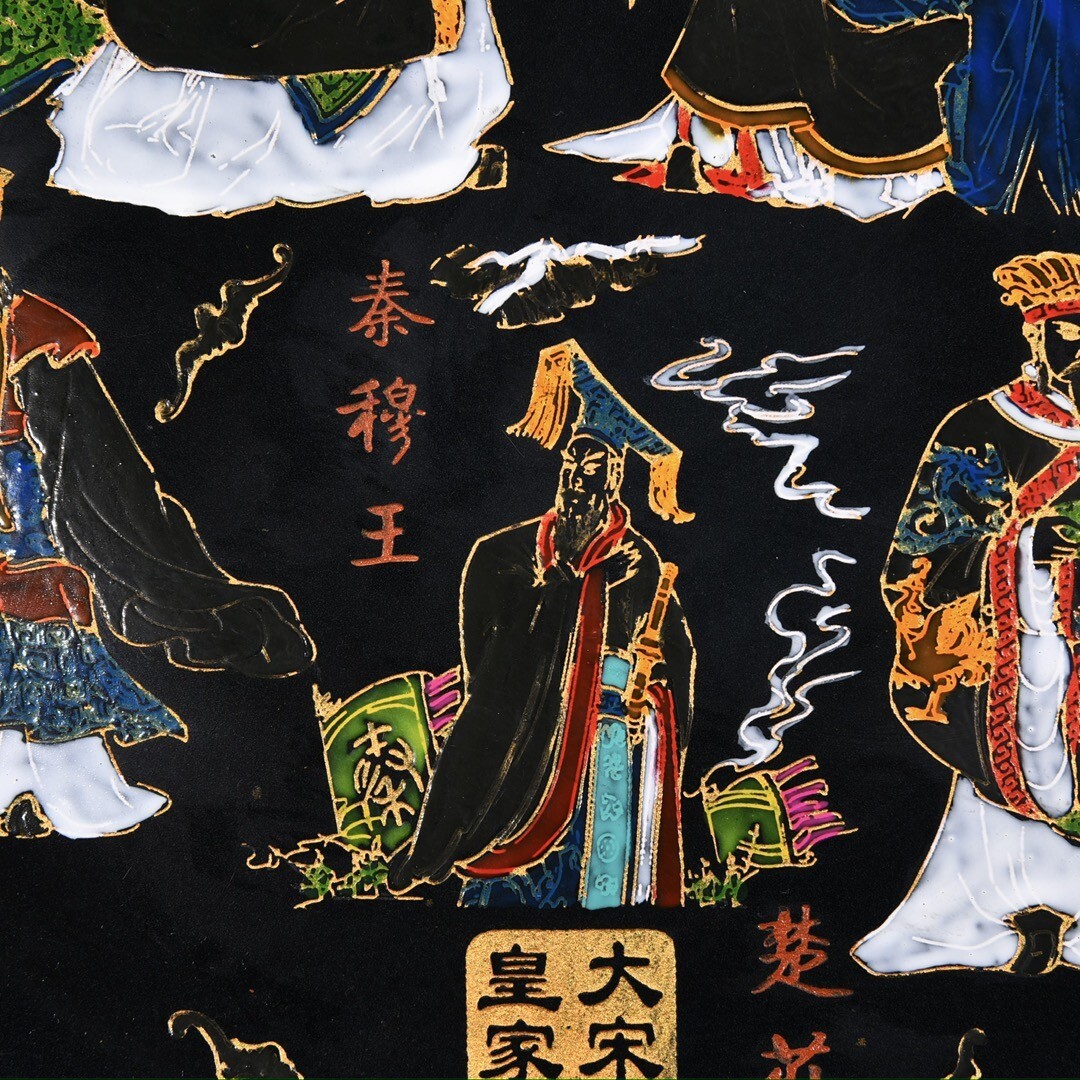 秦穆王
大宋
皇家
楚